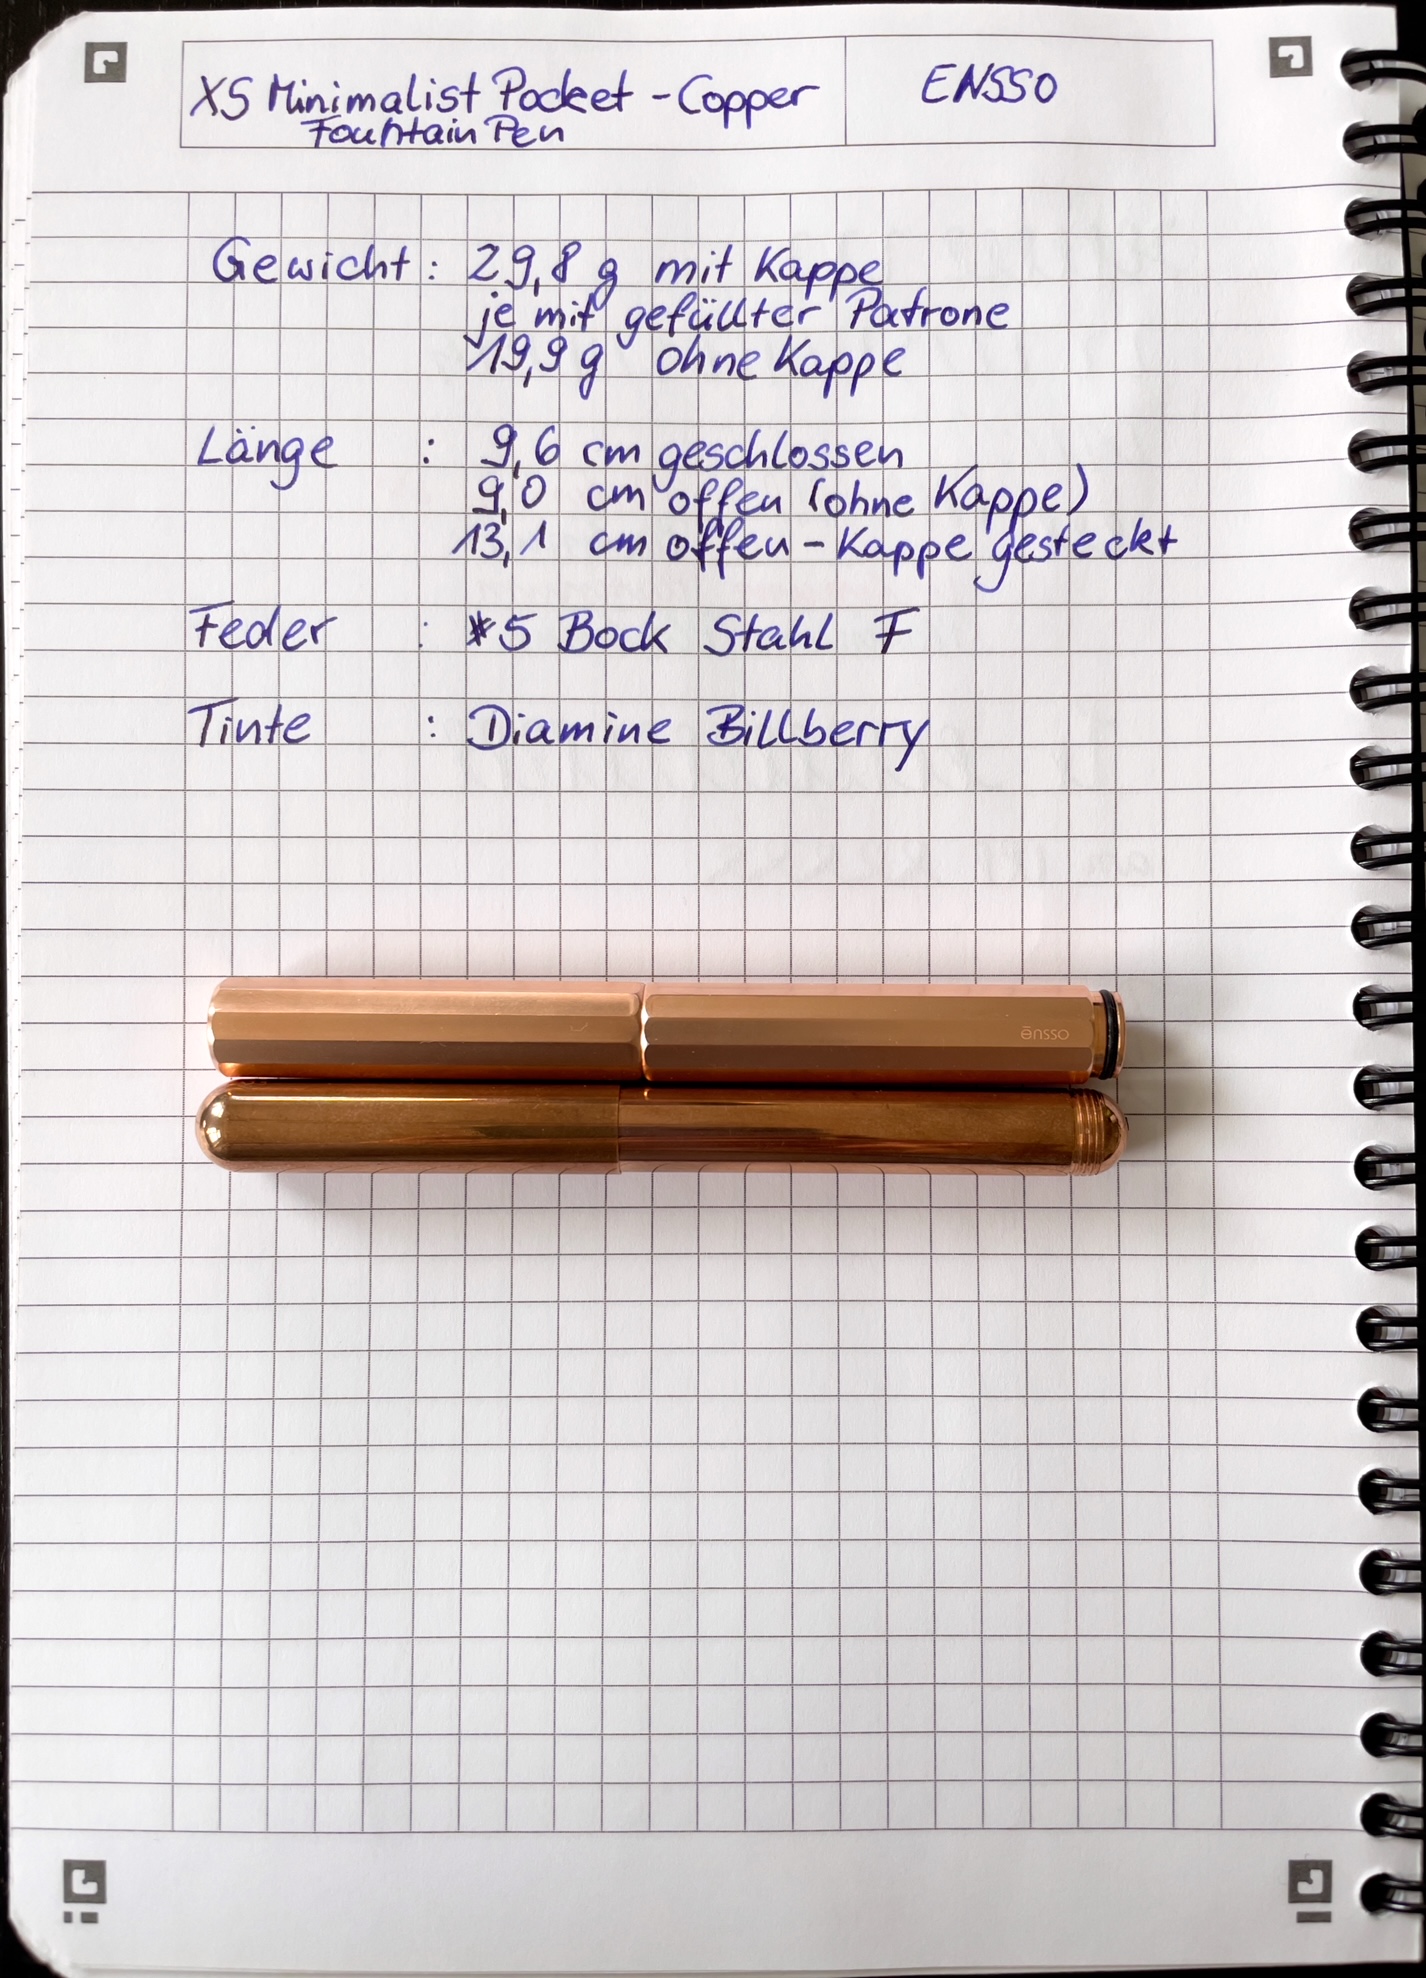 XS Minimalist Pocket - Copper
Fountain Pen
ENSSO
Gewicht : 29,8 g mit Kappe
je mit gefüllter Patrone
19,9 g ohne Kappe
Länge : 9,6 cm geschlossen
9,0 cm offen (ohne Kappe)
13,1 cm offen - Kappe gesteckt
Feder : #5 Bock Stahl F
Tinte : Diamine Billberry
ēnsso